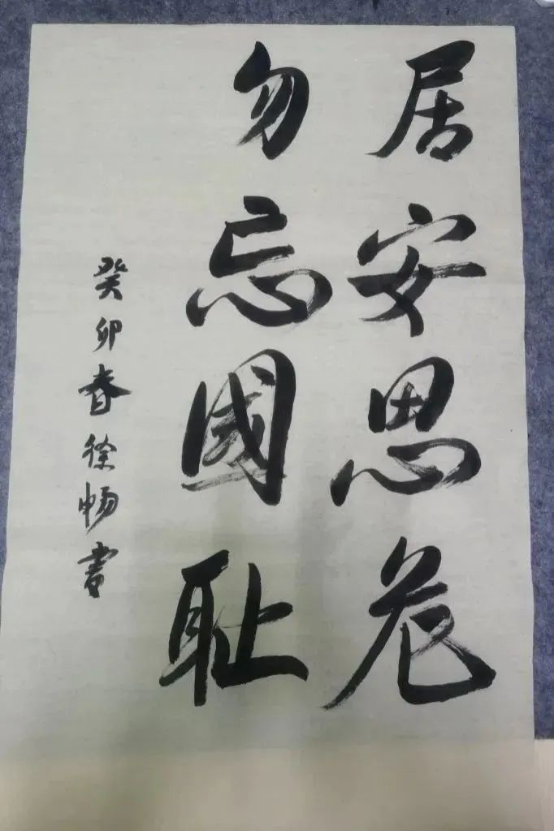 居安思危
勿忘國耻
癸卯春徐畅書